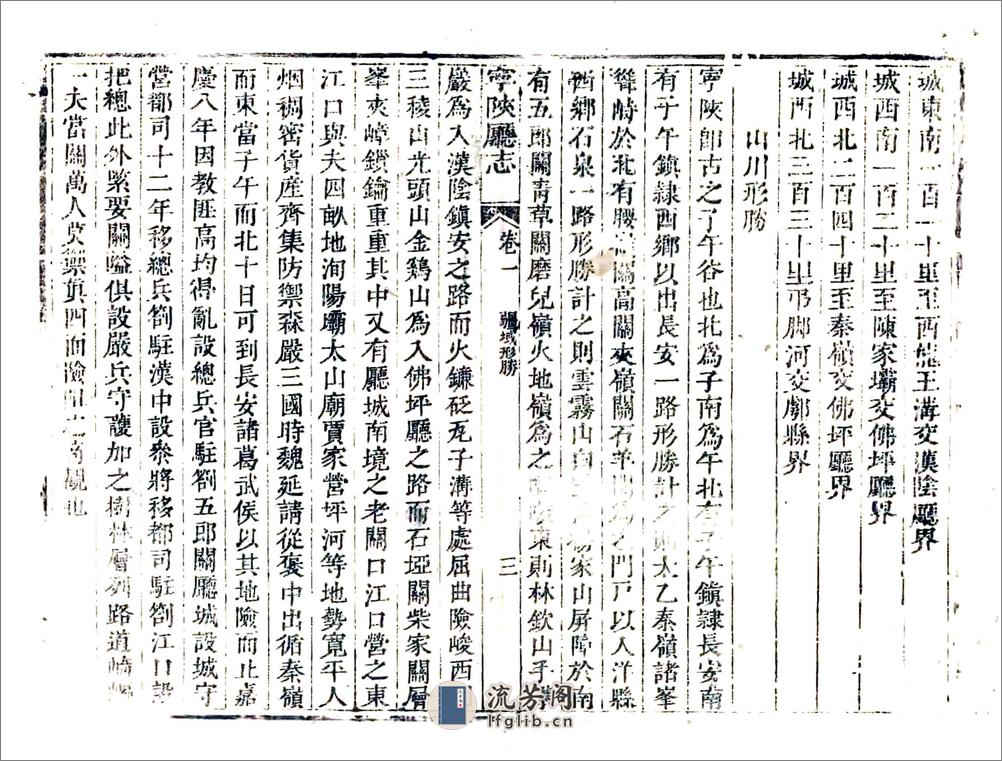 城東南一百一十里至西岔王溝交漢陰廳界
城西南一百二十里至陳家壩交佛坪廳界
城西北二百四十里至秦嶺交佛坪廳界
城西北三百三十里弔脚河交鄠縣界
山川形勝
寧陜卽古之子午谷也北爲子南爲午北有子午鎮隷長安南
有子午鎮隷西鄉以出長安一路形勝計之則太乙秦嶺諸峯
聳峙於北有腰關高關夾嶺關石羊門戸以入洋縣
西鄉石泉一路形勝計之則雲霧山白楊家山屏障於南
有五郎關靑草關磨兒嶺火地嶺爲之東則林欽山手
寧陜廳志 卷一 疆域形勝 三
嚴爲入漢陰鎮安之路而火鐮砭尾子溝等處屈曲險峻西
三稜山光頭山金鷄山爲入佛坪廳之路而石埡關柴家關層
峯夾嶂鎖鑰重重其中又有廳城南境之老關口江口營之東
江口與夫四畝地洵陽壩太山廟賈家營坪河等地勢寬平人
烟稠密貨産齊集防禦森嚴三國時魏延請從褒中出循秦嶺
而東當子午而北十日可到長安諸葛武侯以其地險而止嘉
慶八年因教匪高均得亂設總兵官駐劄五郎關廳城設城守
營都司十二年移總兵劄駐漢中設叅將移都司駐劄江口設
把總此外緊要關隘俱設嚴兵守護加之樹林層列路道崎嶇
一夫當關萬人莫禦眞四面險
流芳阁
lfglib.cn